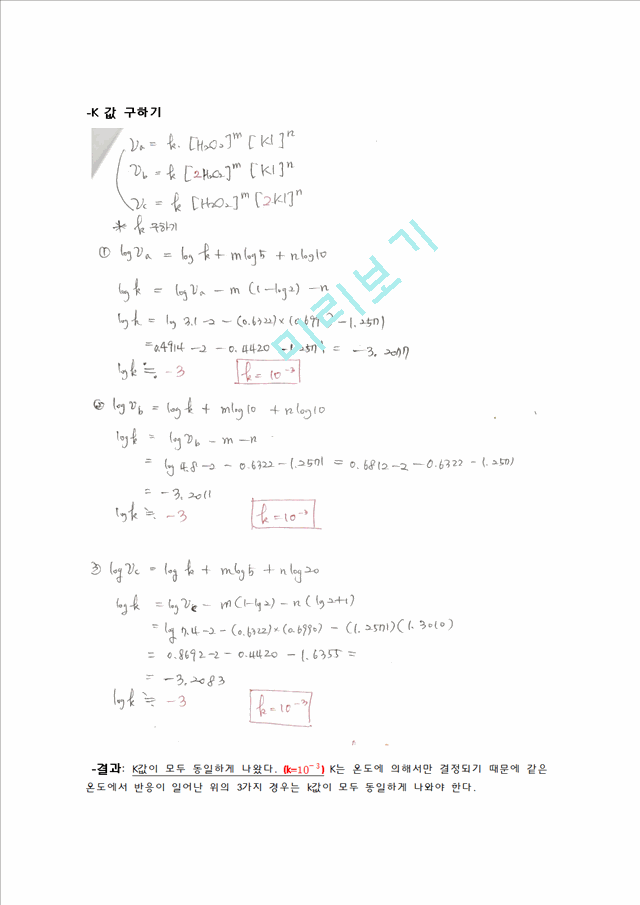 -K 값 구하기
Va = k [H₂O₂]^m [KI]^n
Vb = k [2H₂O₂]^m [KI]^n
Vc = k [H₂O₂]^m [2KI]^n
* k 구하기
① log Va = log k + m log 5 + n log 10
log k = log Va - m (1-log2) - n
log k = log 3.1 -2 - (0.6322)×(0.699 ) - 1.2571
= 0.4914 -2 - 0.4420 - 1.2571 = -3.2077
log k ≒ -3 k = 10^-3
② log Vb = log k + m log 10 + n log 10
log k = log Vb - m - n
= log 4.8 -2 - 0.6322 - 1.2571 = 0.6812 -2 - 0.6322 - 1.257
= -3.2011
log k ≒ -3 k = 10^-3
③ log Vc = log k + m log 5 + n log 20
log k = log Vc - m(1-log2) - n (log2+1)
= log 7.4 -2 - (0.6322)×(0.6990) - (1.2571)(1.3010)
= 0.8692 -2 - 0.4420 - 1.6355 =
= -3.2083
log k ≒ -3 k = 10^-3
미리보기
-결과: K값이 모두 동일하게 나왔다. (k=10⁻³) K는 온도에 의해서만 결정되기 때문에 같은
온도에서 반응이 일어난 위의 3가지 경우는 k값이 모두 동일하게 나와야 한다.